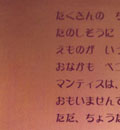 たくさんの
たのしそうに
えものが い
おなかも ペ
マンティスは、
おもいませんで
ただ、ちょうた